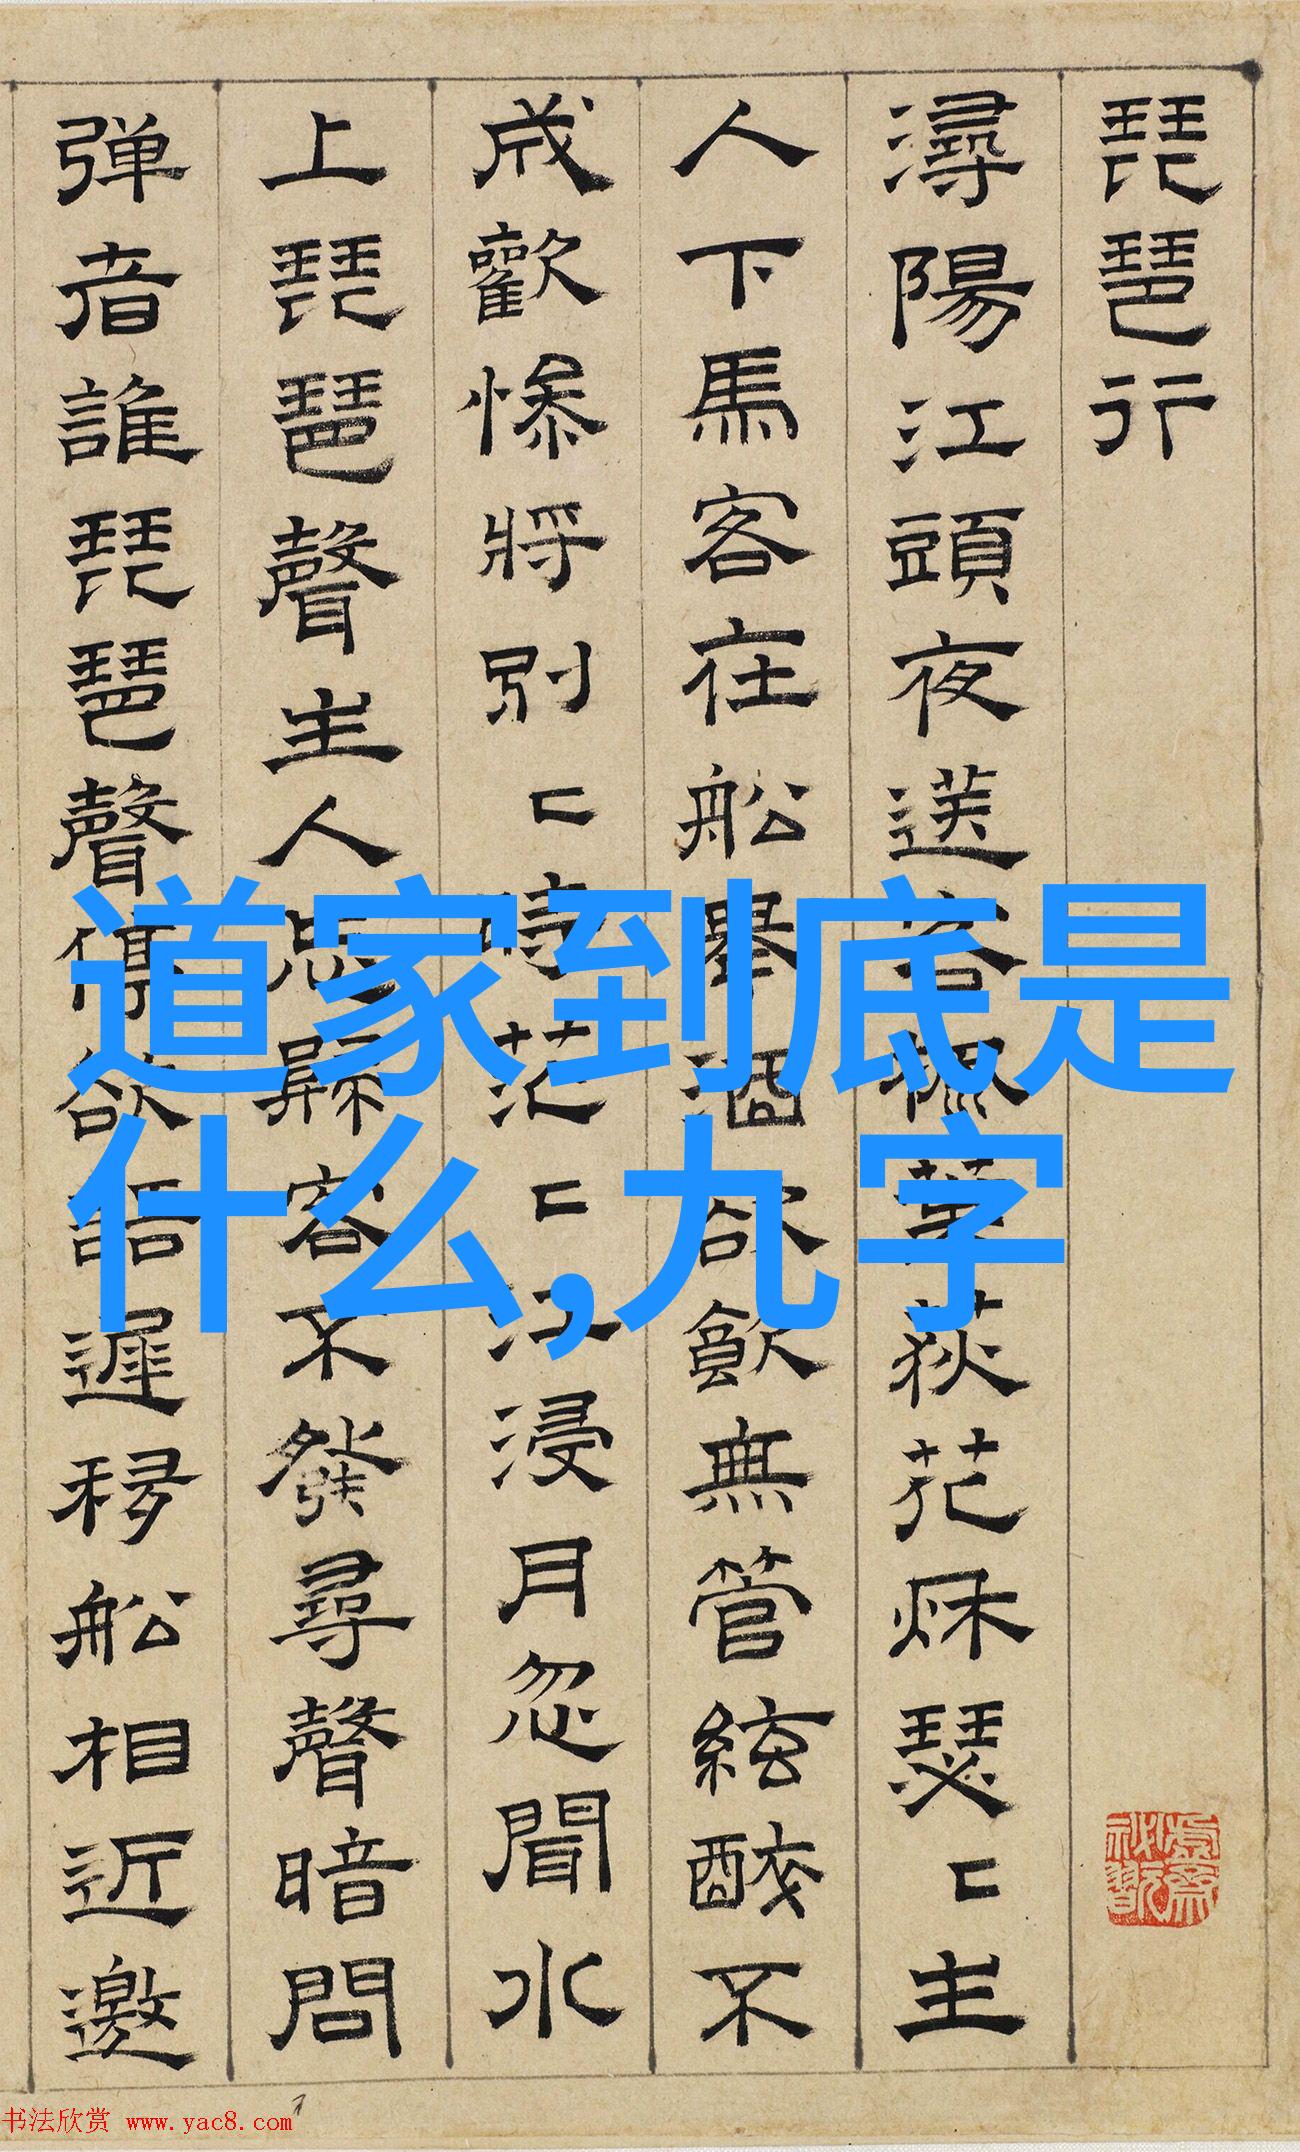 琵琶行
潯陽江頭夜送客楓葉荻花秌瑟〻主
人下馬客在船舉酒欲飲無管絃醉不
成歡慘將別〻時茫〻江浸月忽聞水
上琵琶聲主人忘歸客不發尋聲暗問
弹者誰琵琶聲停欲語遲移船相近邀
道家到底是
什么,九字
书法欣赏 www.yac8.com